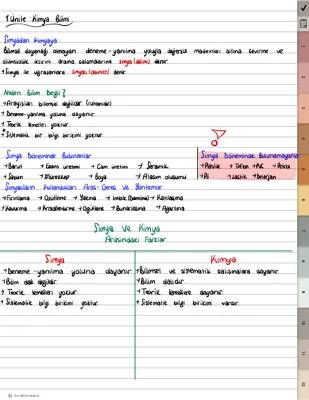 1.Ünite Kimya Bilimi
Simyadan Kimyaya
Bilimsel dayanağı olmayan deneme-yanılma yoluyla değersiz madenleri altına çevirme ve
ölümsüzlük iksirini arama çalışmalarına simya (alşimi) denir.
→ Simya ile uğraşanlara simyacı (alşimist) denir.
Neden Bilim Değil?
→ Arayışları bilimsel değildir.
→ Deneme-yanılma yoluna dayanır.
→ Teorik temelleri yoktur.
→ Sistematik bir bilgi birikimi yoktur.
Simya Döneminde Bulunanlar
→ Barut → Cam üretimi → Seramik
→ Sabun → Mürekkep → Boya → Alaşım oluşumu
Simya Döneminde Bulunamayanlar
→ Plastik → Teflon → PVC
→ Lastik → Deterjan
Simyacıların Kullandıkları Araç-Gereç Ve Yöntemler
→ Fırınlama → Öğütme → Yakma → → Karıştırma
→ Kavurma → → Buharlaşma → Ağartma
Simya Ve Kimya
Arasındaki Farklar
Simya
→ Deneme-yanılma yoluna dayanır.
→ Bilim dalı değildir.
→ Teorik temelleri yoktur.
→ Sistematik bilgi birikimi yoktur.
Kimya
→ Bilimsel ve sistematik çalışmalara dayanır.
→ Bilim dalıdır.
→ Teorik temellere dayanır.
→ Sistematik bilgi birikimi vardır.